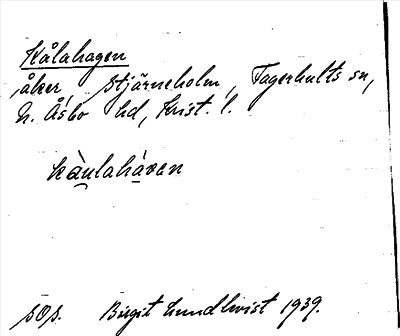 Kålahagen
åker Stjärneholm, Fagerhults sn,
N. Åsbo hd, Krist. l.
kàulahàven
sop. Birgit Lundkvist 1939.